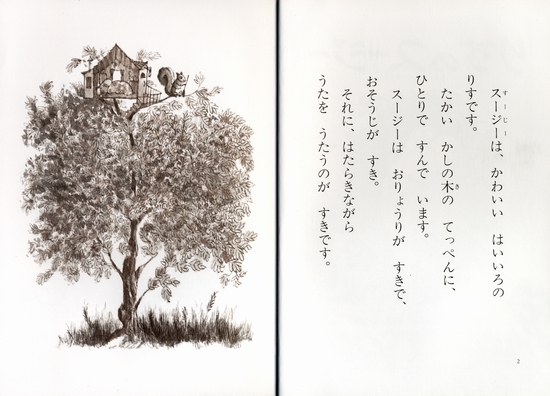 スージーは、かわいい　はいいろの
りすです。
たかい　かしの木の　てっぺんに、
ひとりで　すんで　います。
スージーは　おりょうりが　すきで、
おそうじが　すき。
それに、はたらきながら
うたを　うたうのが　すきです。
2